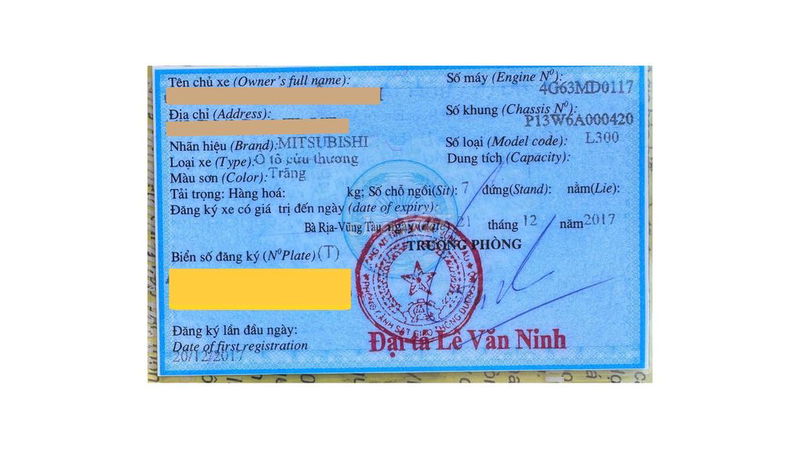 Tên chủ xe (Owner's full name):
Địa chỉ (Address):
Nhãn hiệu (Brand): MITSUBISHI
Loại xe (Type): Ô tô cứu thương
Màu sơn (Color): Trắng
Tải trọng: Hàng hoá: kg; Số chỗ ngồi(Sit): 7 đứng(Stand): nằm(Lie):
Đăng ký xe có giá trị đến ngày (date of expiry):
Số máy (Engine Nº): 4G63MD0117
Số khung (Chassis Nº): P13W6A000420
Số loại (Model code): L300
Dung tích (Capacity):
Bà Rịa-Vũng Tàu, ngày (date) 21 tháng 12 năm 2017
TRƯỞNG PHÒNG
Biển số đăng ký (NºPlate) (T)
Đăng ký lần đầu ngày:
Date of first registration
20/12/2017
Đại tá Lê Văn Ninh